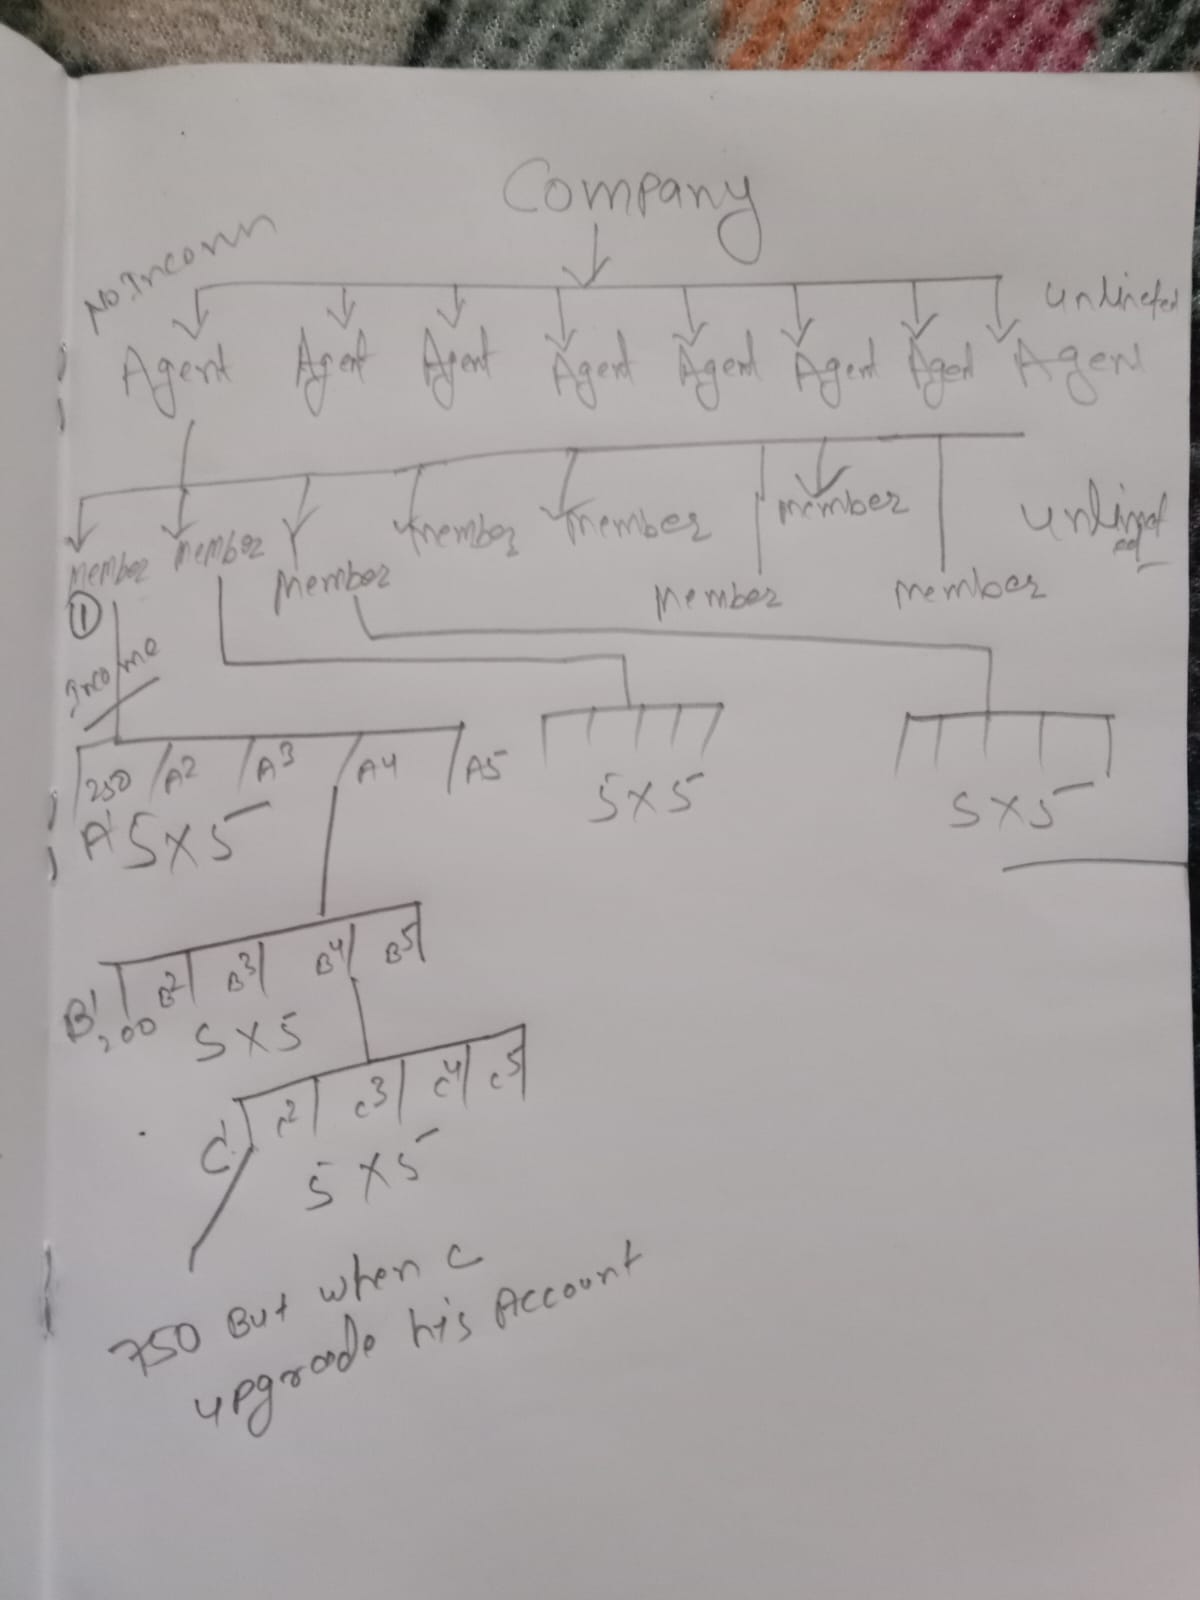 Company
No Incomm
unlimeted
Agent Agent Agent Agent Agent Agent Agent Agent
Member Member Member member member member member member
①
Income
250 A2 A3 A4 A5
A1 5X5
5X5
5X5
B1 B2 B3 B4 B5
200 5X5
C1 c2 c3 c4 c5
5X5
750 But when c
upgrade his Account